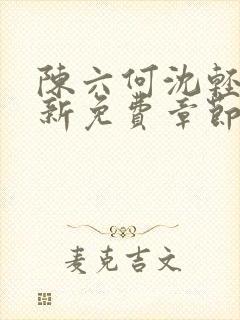 陳六何沈輕
新免費章節
麦克吉文